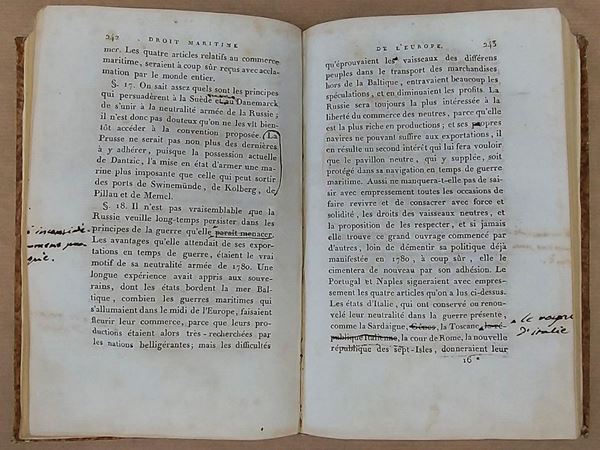 242 DROIT MARITIME
mer. Les quatre articles relatifs au commerce
maritime, seraient à coup sûr reçus avec accla-
mation par le monde entier.
§. 17. On sait assez quels sont les principes
qui persuadèrent à la Suède et au Danemarck
de s'unir à la neutralité armée de la Russie ;
il n'est donc pas douteux qu'on ne les vît bien-
tôt accéder à la convention proposée. (La
Prusse ne serait pas non plus des dernières
à y adhérer, puisque la possession actuelle
de Dantzic, l'a mise en état d'armer une ma-
rine plus imposante que celle qui peut sortir
des ports de Swinemünde, de Kolberg, de
Pillau et de Memel.
§. 18. Il n'est pas vraisemblable que la
Russie veuille long-temps persister dans les
principes de la guerre qu'elle paraît menacer.
Les avantages qu'elle attendait de ses expor-
tations en temps de guerre, étaient le vrai
motif de sa neutralité armée de 1780. Une
longue expérience avait appris aux souve-
rains, dont les états bordent la mer Bal-
tique, combien les guerres maritimes qui
s'allumaient dans le midi de l'Europe, faisaient
fleurir leur commerce, parce que leurs pro-
ductions étaient alors très-recherchées par
les nations belligérantes ; mais les difficultés
DE L'EUROPE. 243
qu'éprouvaient les vaisseaux des différens
peuples dans le transport des marchandises
hors de la Baltique, entravaient beaucoup les
spéculations, et en diminuaient les profits. La
Russie sera toujours la plus intéressée à la
liberté du commerce des neutres, parce qu'elle
est la plus riche en productions ; et ses propres
navires ne pouvant suffire aux exportations, il
en résulte un second intérêt qui lui fera vouloir
que le pavillon neutre, qui y supplée, soit
protégé dans sa navigation en temps de guerre
maritime. Aussi ne manquera-t-elle pas de sai-
sir avec empressement toutes les occasions de
faire revivre et de consacrer avec force et
solidité, les droits des vaisseaux neutres, et
la proposition de les respecter, et si jamais
elle trouve ce grand ouvrage commencé par
d'autres, loin de démentir sa politique déjà
manifestée en 1780, à coup sûr, elle le
cimentera de nouveau par son adhésion. Le
Portugal et Naples signeraient avec empresse-
ment les quatre articles qu'on a lus ci-dessus.
Les états d'Italie, qui ont conservé ou renou-
velé leur neutralité dans la guerre présente,
comme la Sardaigne, Gênes, la Toscane, la ré-
publique Italienne, la cour de Rome, la nouvelle
république des sept-Isles, donneraient leur
16 *
d'italie